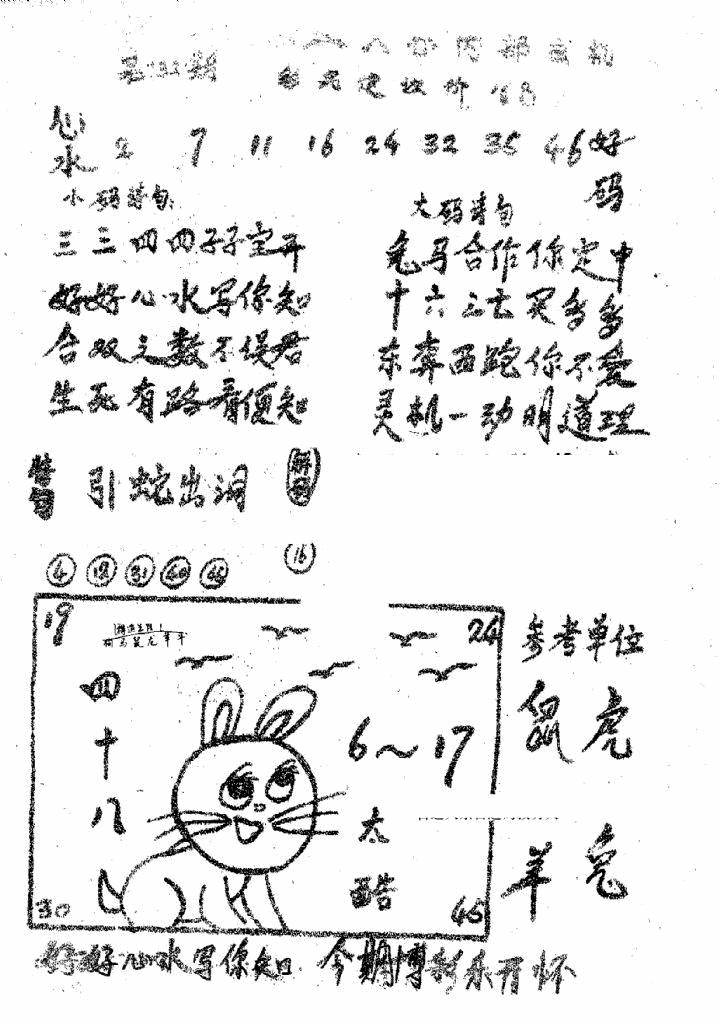 心水 2 7 11 16 24 32 35 46 好码
小码诗句
三三四四子子宝开
好好心水写你知
合双之数不误君
生死有路看便知
大码诗句
兔马合作你定中
十六三七买多多
东奔西跑你不爱
灵机一动明道理
特句 引蛇出洞
4 12 31 40 16
19 24
四十八
6～17
太酷
30 45
参考单位
鼠 虎
羊 兔
好好心水写你知 今期博彩乐开怀